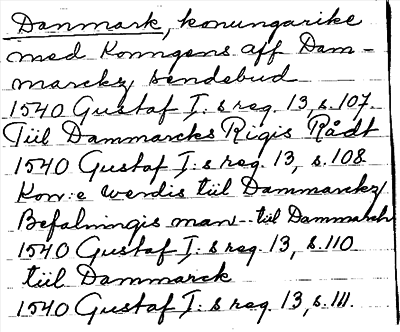 Danmark, konungarike
med Konngens aff Dam-
marckz sendebud
1540 Gustaf I:s reg. 13, s. 107.
Tiil Dammarcks Rigis Rådt
1540 Gustaf I:s reg. 13, s. 108
Kon:e werdis tiil Dammarckz
Befalningis man - till Dammarck
1540 Gustaf I:s reg. 13, s. 110
tiil Dammarck
1540 Gustaf I:s reg. 13, s. 111.